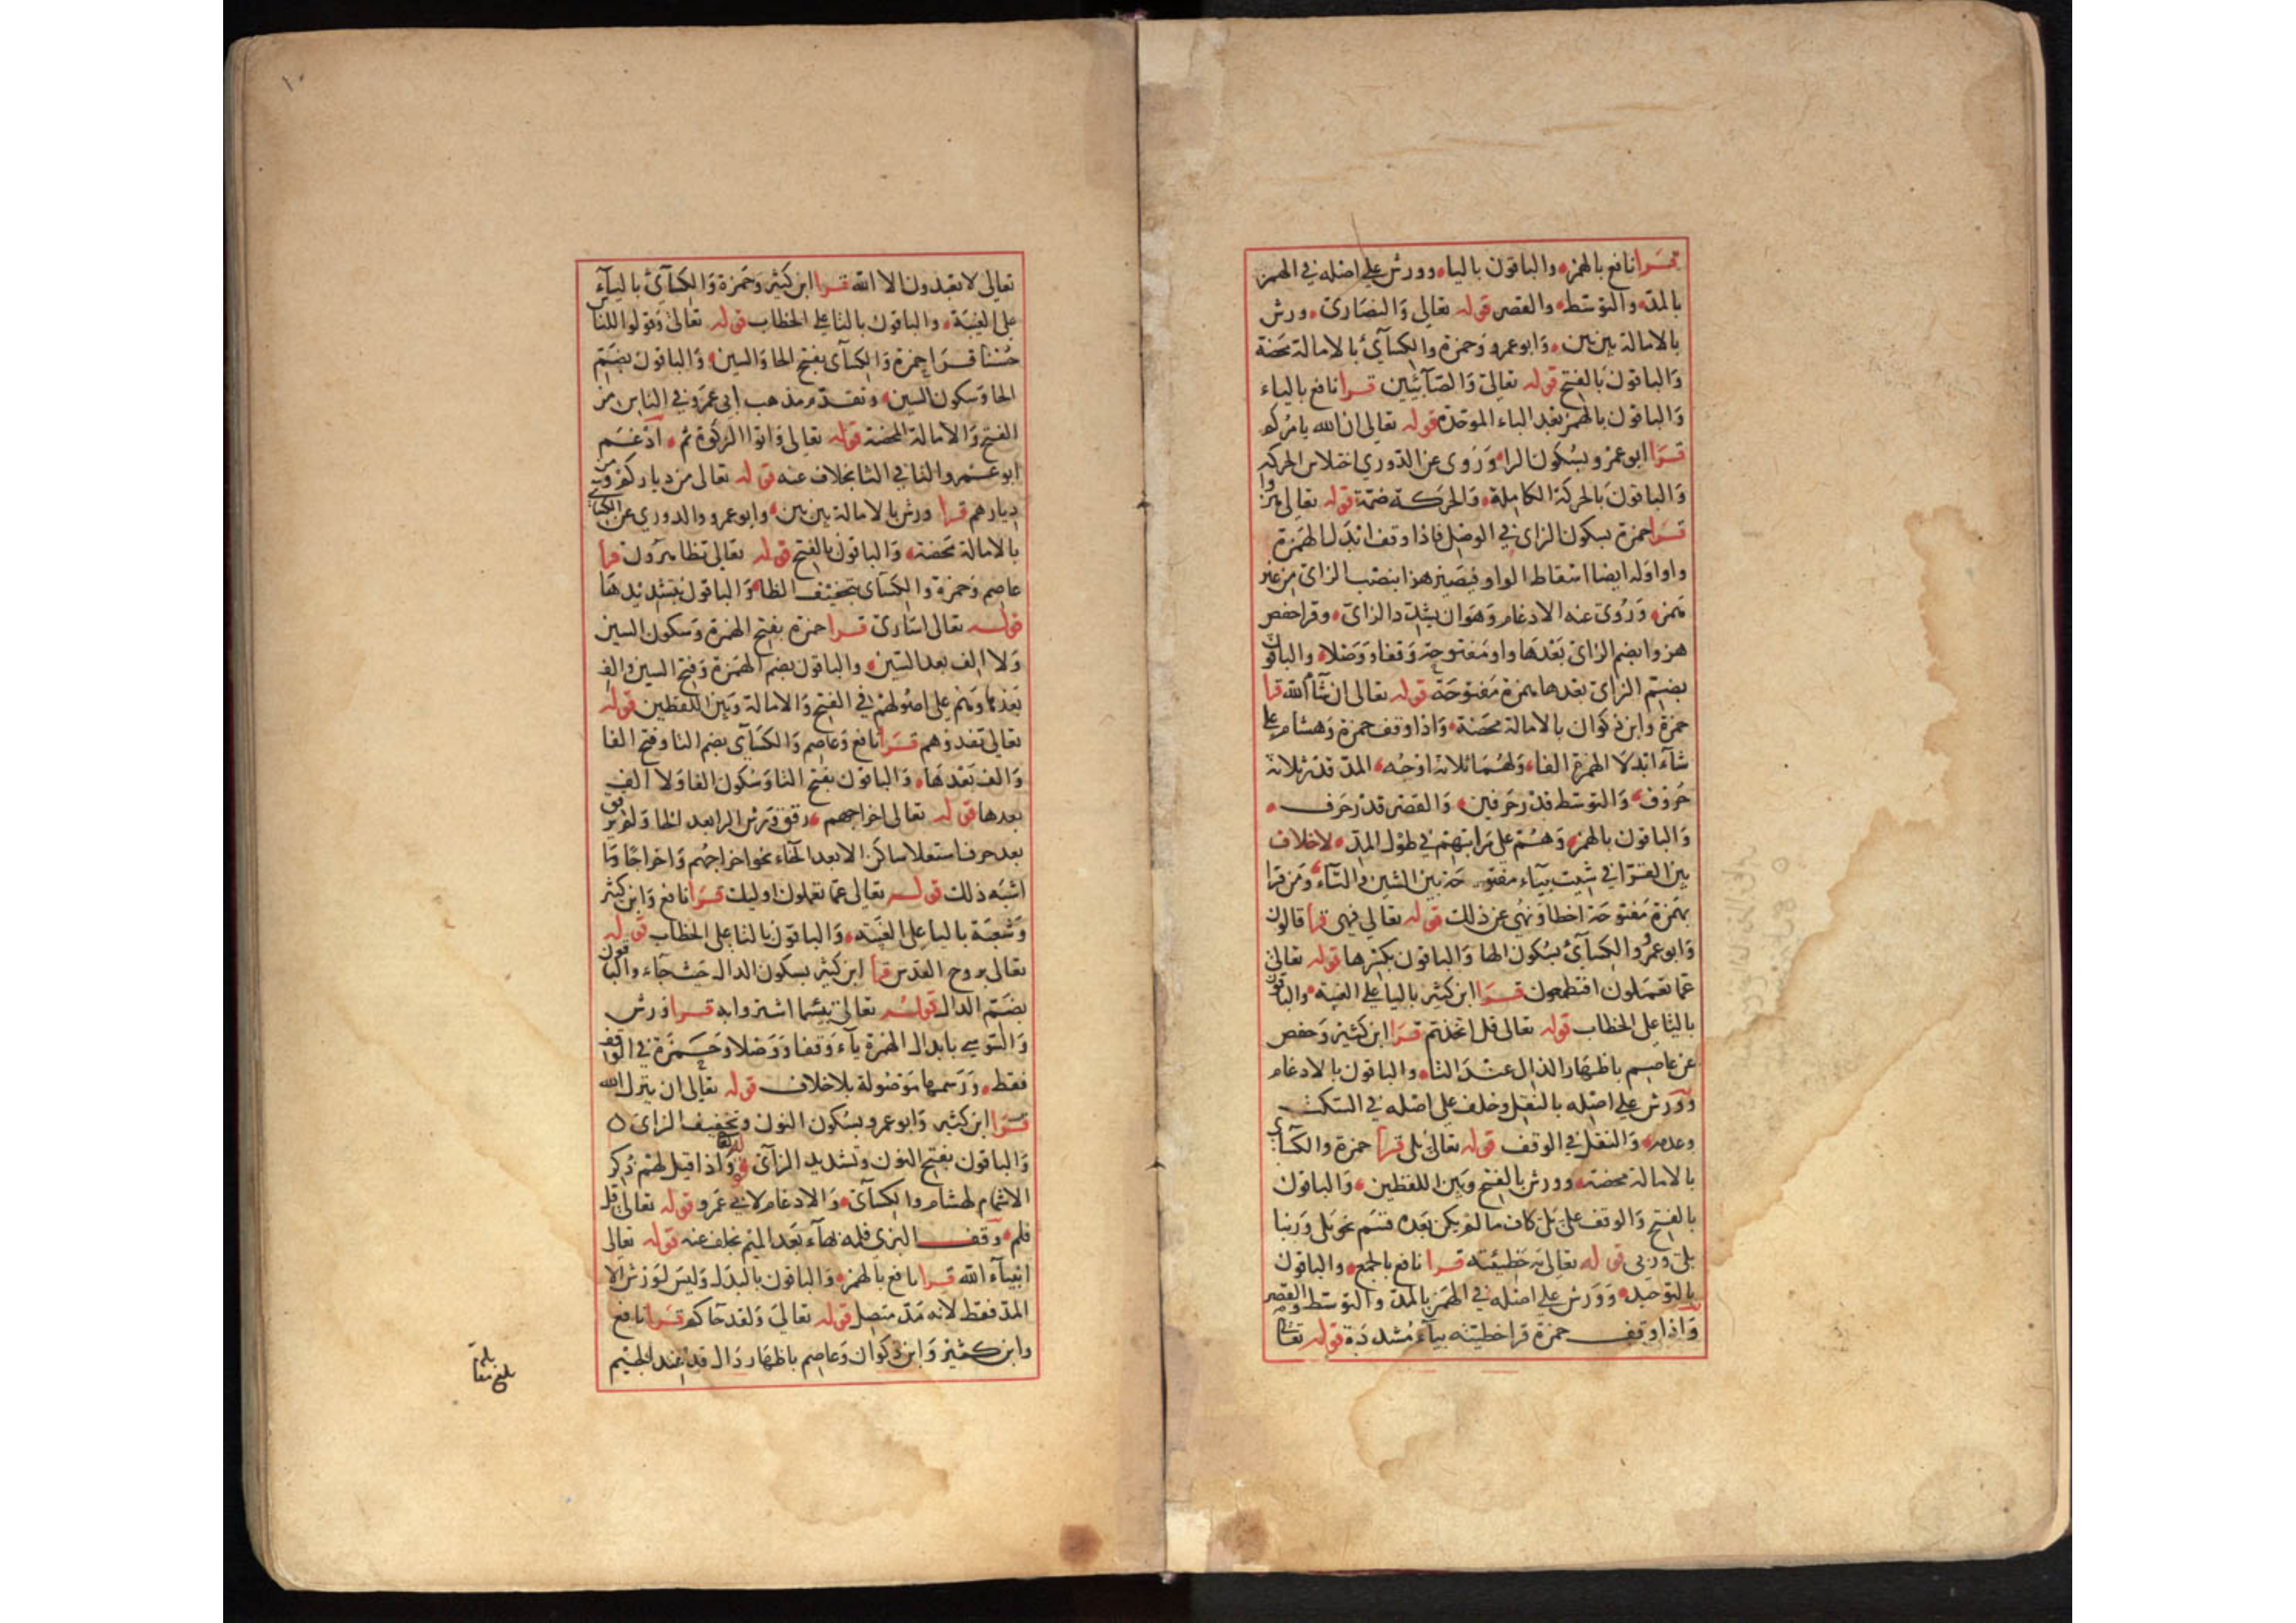 قرا نافع بالهمز والباقون باليا وورش على اصله في الهمز
بالمد والتوسط والقصر قوله تعالى والنصارى ورش
بالامالة بين بين وابو عمرو وحمزة والكسآئ بالامالة محضة
والباقون بالفتح قوله تعالى والصآئبين قرا نافع بالياء
والباقون بالهمز بعد الباء الموحدة قوله تعالى ان الله يامركم
قرا ابو عمرو بسكون الرا وروى عن الدوري اختلاس الحركه
والباقون بالحركة الكاملة والحركة ضمة قوله تعالى هزوا
قرا حمزة بسكون الزاى في الوصل فاذا وقف ابدل الهمزة
واوا وله ايضا اسقاط الواو فيصير هزا بنصب الزاى من غير
همز وروى عنه الادغام وهو ان يشدد الزاى وقرا حفص
هزوا بضم الزاى بعدها واو مفتوحة وقفا ووصلا والباقون
بضم الزاى بعدها همزة مفتوحة قوله تعالى ان شآ الله قرا
حمزة وابن ذكوان بالامالة محضة واذا وقف حمزة وهشام على
شآء ابدلا الهمزة الفا ولهما ثلاثة اوجه المد قدر ثلاثة
حروف والتوسط قدر حرفين والقصر قدر حرف
والباقون بالهمز وهم على مراتبهم في طول المد لا خلاف
بين القرا في شيت بيآء مفتوحة بين الشين والتآء ومن قرا
بهمزة مفتوحة اخطا ونهى عن ذلك قوله تعالى فهى قرا قالون
وابو عمرو والكسآئ بسكون الها والباقون بكسرها قوله تعالى
عما تعملون افتطمعون قرا ابن كثير باليا على الغيبة والباقون
بالتا على الخطاب قوله تعالى قل اتخذتم قرا ابن كثير وحفص
عن عاصم باظهار الذال عند التا والباقون بالادغام
وورش على اصله بالنقل وخلف على اصله في السكت
وعدمه والنقل في الوقف قوله تعالى بلى قرا حمزة والكسآئ
بالامالة محضة وورش بالفتح وبين اللفظين والباقون
بالفتح والوقف على بلى كاف ما لم يكن بعده قسم نحو بلى وربنا
بلى وربى قوله تعالى به خطيئته قرا نافع بالجمع والباقون
بالتوحيد وورش على اصله في الهمز بالمد والتوسط والقصر
واذا وقف حمزة قرا خطيته بيآء مشددة قوله تعالى
تعالى لا تعبدون الا الله قرا ابن كثير وحمزة والكسآئ باليآء
على الغيبة والباقون بالتا على الخطاب قوله تعالى وقولوا للناس
حسنا قرا حمزة والكسآى بفتح الحا والسين والباقون بضم
الحا وسكون السين وتقدم مذهب ابى عمرو في الناس من
الفتح والامالة المحضة قوله تعالى واتوا الزكوة ثم ادغم
ابو عمرو التا في الثا بخلاف عنه قوله تعالى من دياركم ومن
ديارهم قرا ورش بالامالة بين بين وابو عمرو والدوري عن الكسآئ
بالامالة محضة والباقون بالفتح قوله تعالى تظاهرون قرا
عاصم وحمزة والكسآى بتخفيف الظا والباقون بتشديدها
قوله تعالى اسارى قرا حمزة بفتح الهمزة وسكون السين
ولا الف بعد السين والباقون بضم الهمزة وفتح السين والف
بعدها وهم على اصولهم في الفتح والامالة وبين اللفظين قوله
تعالى تفدوهم قرا نافع وعاصم والكسآى بضم التا وفتح الفا
والف بعدها والباقون بفتح التا وسكون الفا ولا الف
بعدها قوله تعالى اخراجهم رقق ورش الرا بعد الخا ولم يرقق
بعد حرف استعلا ساكن الا بعد الخآء نحو اخراجهم واخراجا وما
اشبه ذلك قوله تعالى عما تعملون اوليك قرا نافع وابن كثير
وشعبة باليا على الغيبه والباقون بالتا على الخطاب قوله
تعالى بروح القدس قرا ابن كثير بسكون الدال حيث جآء والباقون
بضم الدال قوله تعالى بئسما اشتروا به قرا ورش
والسوسي بابدال الهمزة يآء وقفا ووصلا وحمزة في الوقف
فقط ورسمها موصولة بلا خلاف قوله تعالى ان ينزل الله
قرا ابن كثير وابو عمرو بسكون النون وتخفيف الزاى
والباقون بفتح النون وتشديد الزآى واذا قيل لهم ذكر
الاشمام لهشام والكسآئ والادغام لابي عمرو قوله تعالى قل
فلم وقف البزى فلمه بهآء بعد الميم بخلف عنه قوله تعالى
انبيآء الله قرا نافع بالهمز والباقون بالبدل وليس لورش الا
المد فقط لانه مد متصل قوله تعالى ولقد جاكم قرا نافع
وابن كثير وابن ذكوان وعاصم باظهار دال قد عند الجيم
بلغ مقابلة